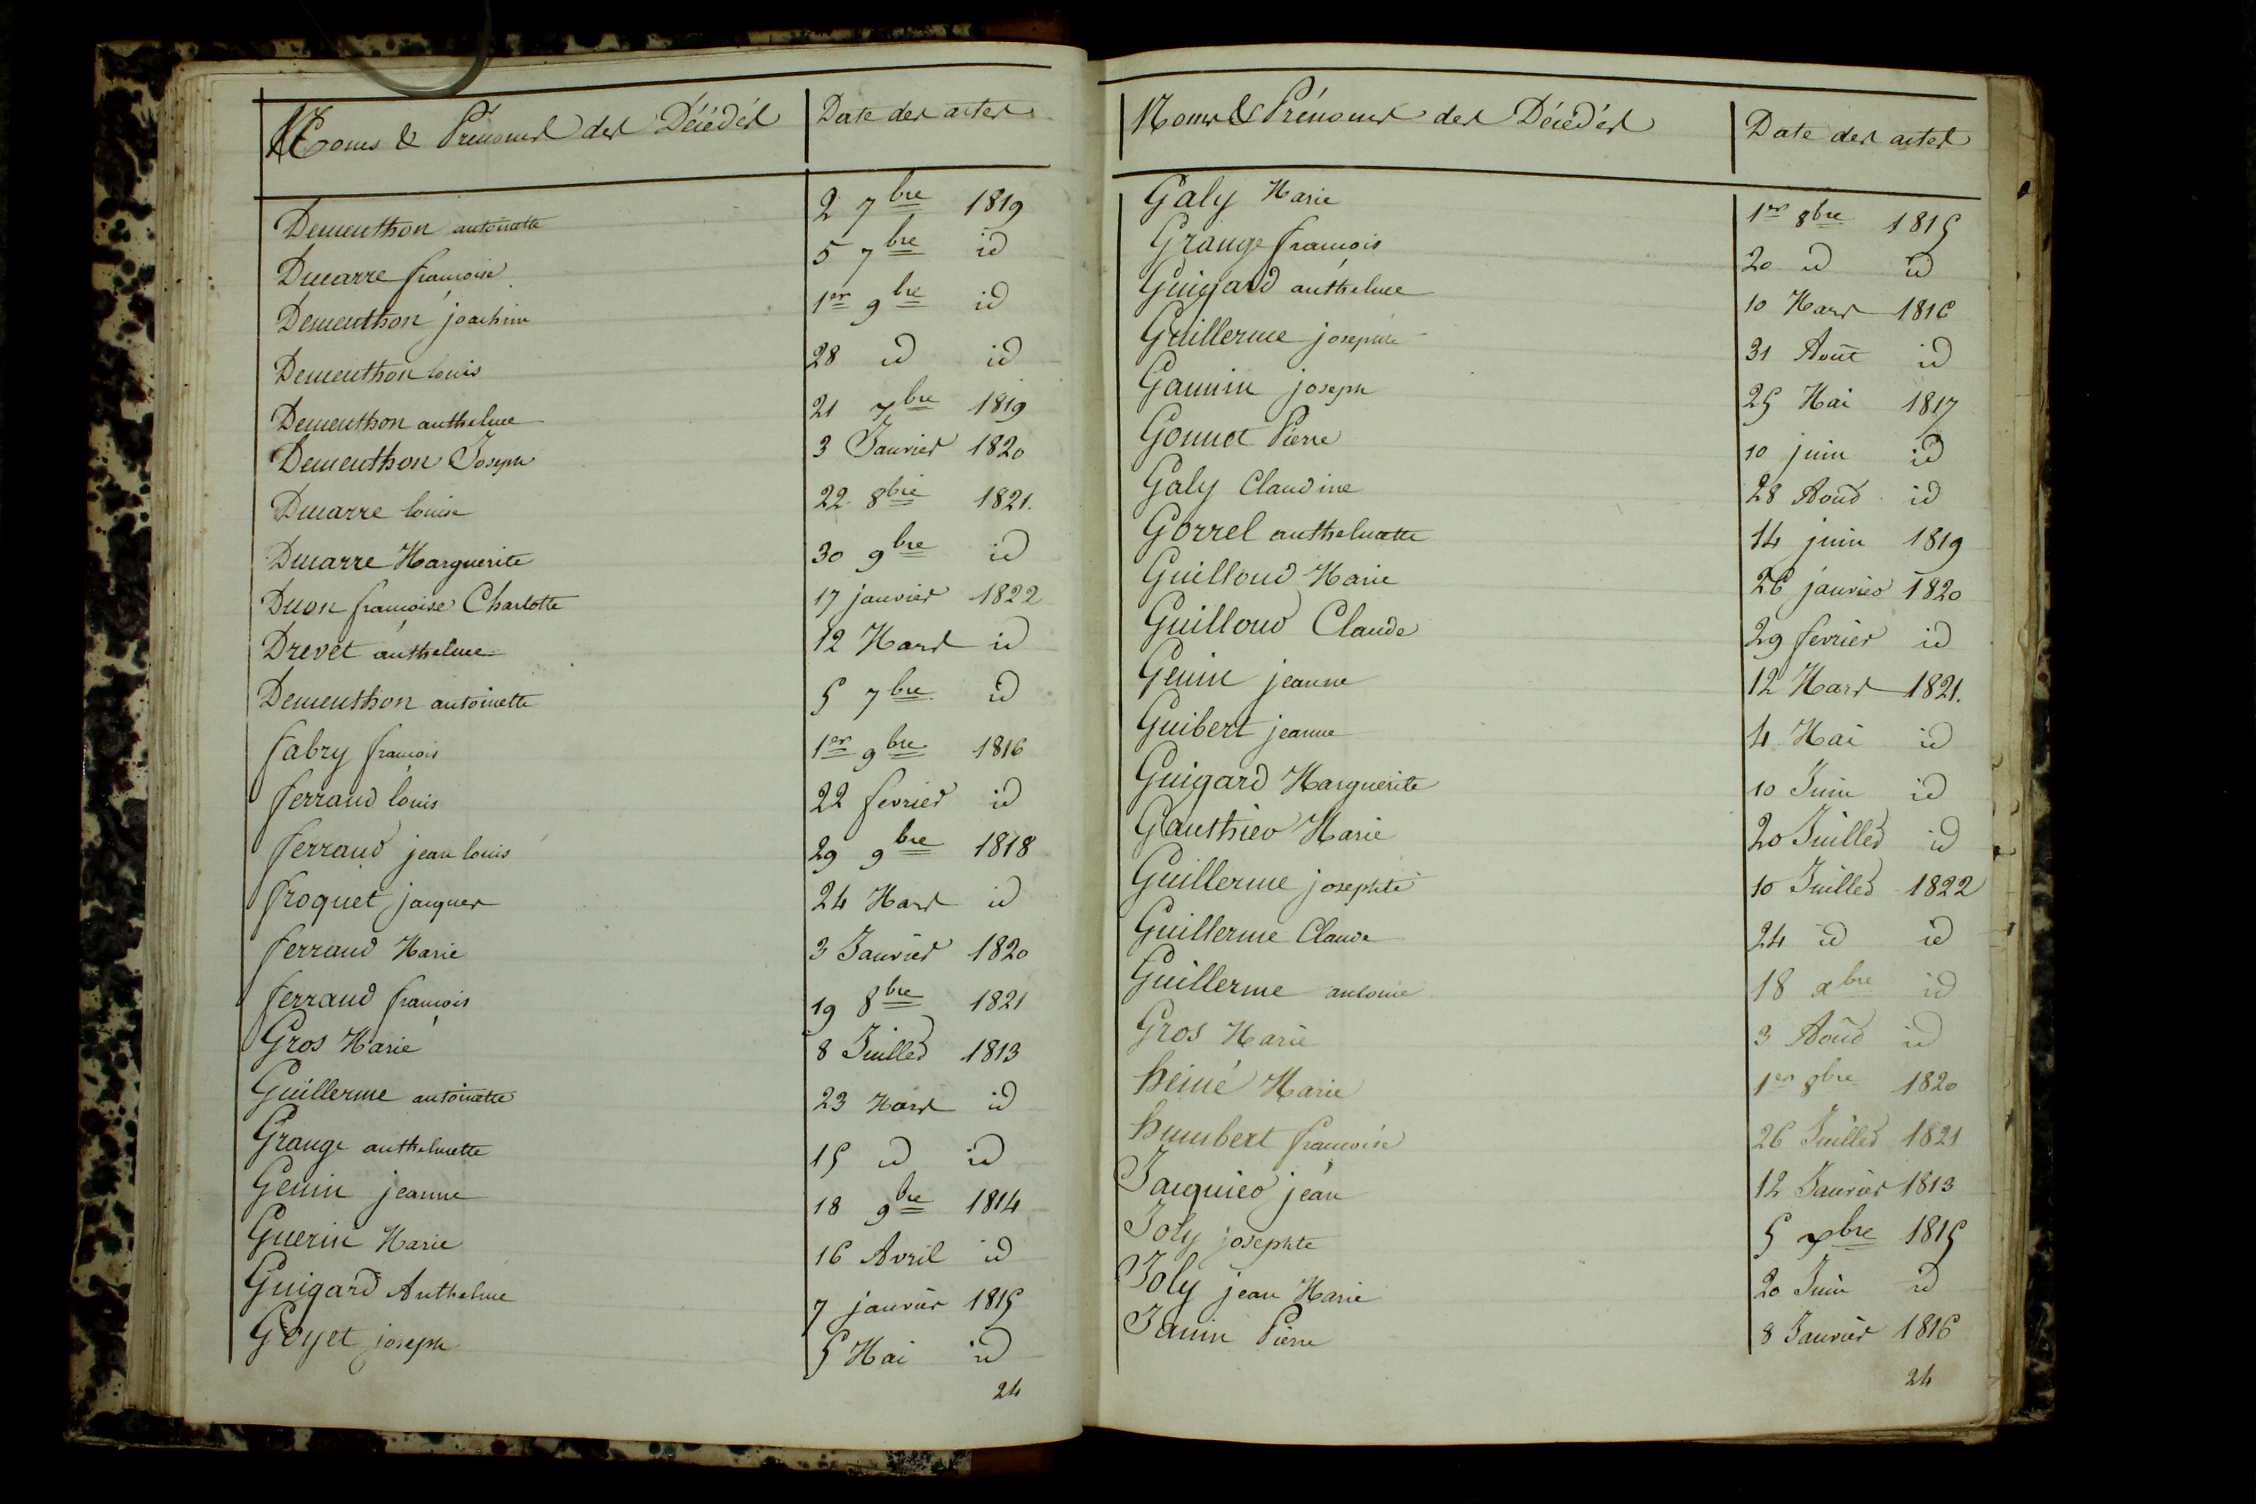 Noms & Prénoms des Décédés Date des actes
Dementhon antoinette 2 7bre 1819
Ducarre francoise 5 7bre id
Dementhon joachim 1er 9bre id
Dementhon louis 28 id id
Dementhon anthelme 21 7bre 1819
Dementhon Joseph 3 Janvier 1820
Ducarre louise 22 8bre 1821.
Ducarre Marguerite 30 9bre id
Duon françoise Charlotte 17 janvier 1822
Drevet anthelme 12 Mars id
Dementhon antoinette 5 7bre id
fabry francois 1er 9bre 1816
ferrand louis 22 fevrier id
ferrand jean louis 29 9bre 1818
froquet jacques 24 Mars id
ferrand Marie 3 Janvier 1820
ferrand francois 19 8bre 1821
Gros Marie 8 Juillet 1813
Guillerme antoinette 23 Mars id
Grange anthelmette 15 id id
Genin jeanne 18 9bre 1814
Guerin Marie 16 Avril id
Guigard Anthelme 7 janvier 1815
Goyet joseph 5 Mai id
24
Noms & Prénoms des Décédés Date des actes
Galy Marie 1er 8bre 1815
Grange francois 20 id id
Guigard anthelme 10 Mars 1816
Guillerme josephte 31 Aout id
Gannin joseph 25 Mai 1817
Gonnet Pierre 10 juin id
Galy Claudine 28 Aout id
Gorrel anthelmette 14 juin 1819
Guilloud Marie 26 janvier 1820
Guilloud Claude 29 fevrier id
Genin jeanne 12 Mars 1821.
Guibert jeanne 4 Mai id
Guigard Marguerite 10 Juin id
Gauthier Marie 20 Juillet id
Guillerme josephte 10 Juillet 1822
Guillerme Claude 24 id id
Guillerme antoine 18 xbre id
Gros Marie 3 Aout id
heiné Marie 1er 8bre 1820
humbert francoise 26 Juillet 1821
Jacquier jean 12 Janvier 1813
Joly josephte 5 xbre 1815
Joly jean Marie 20 Juin id
Janin Pierre 8 Janvier 1816
24